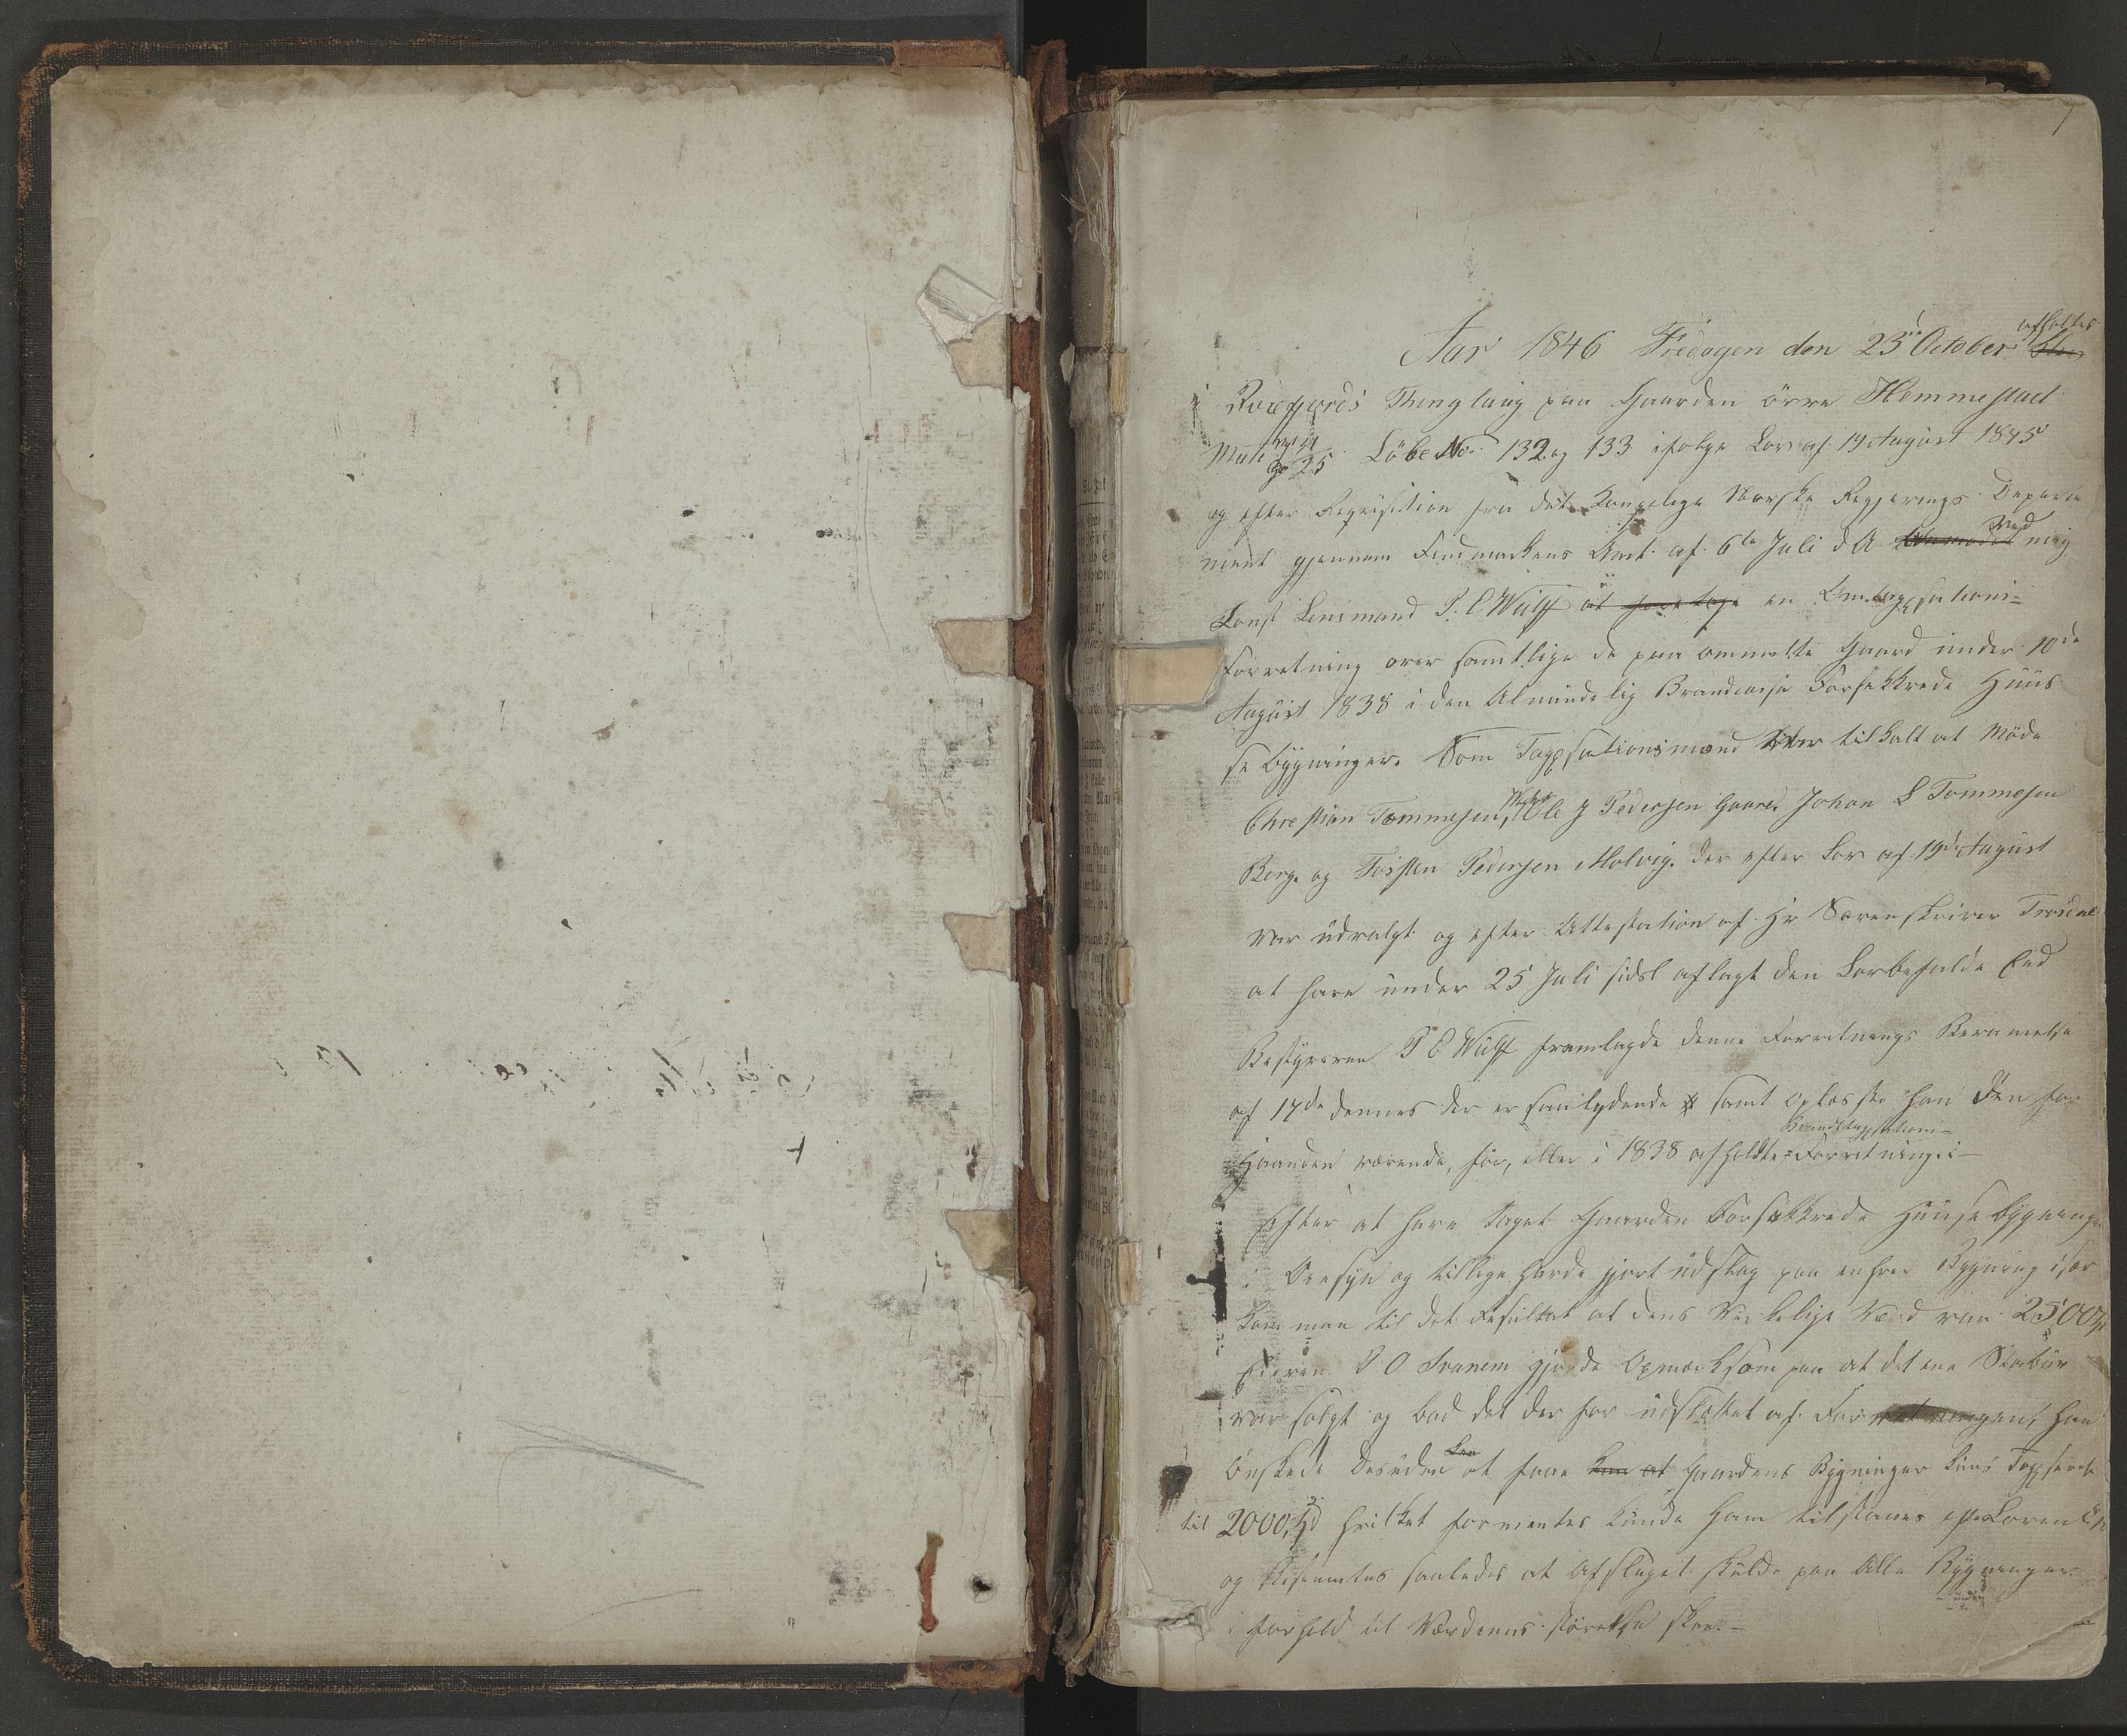 1
Aar 1846 Fredagen den 23de October afholdtes
Kvæfjords Thinglaug paa Gaarden övre Hemmestad
Matr No 25 Löbe No 132 og 133 ifølge Lov af 19 August 1845
og efter Reqvisition fra det Kongelige Norske Regjerings Departe
ment gjennem Finmarkens Amt af 6te Juli d A ved mig
Konst Lensmand P. E Wülff at foretage en Omtaxations=
Forretning over samtlige de paa ommelte Gaard under 10de
August 1838 i den Almindelig Brandcasse Forsikkrede Huus
se bygninger. Som Taxationsmænd tilkalt at Möde
Christian Tommesen, Ole J Pedersen Gaare, Johan L Tommesen
Berg. og Torsten Pedersen Molvig. der efter Lov af 19d August
var udvalgt og efter Attestation af Hr Sorenskriver
at have under 25 Juli sidst aflagt den Lovbefalde Eed
Bestyreren P E Wülff fremlagde denne Forretnings Berammelse
af 17de dennes der er saalydende samt oplæste han den for
Brandtaxations-
Haanden værende, før, eller i 1838 afholdte=Forretning:-
Efter at have taget Gaarden Forsikkrede Huusebygninger
Öiesyn og tillige havde gjort udslag paa enhver Bygning især
kom man til det Resultat at dens Virkelige Værd var 2500
Eieren P O Svanem gjorde Opmærksom paa at det ene Stabur
var solgt og bad det der for udslættet af Forretningen, han
önskede desuden at faae Gaardens Bygninger kuns Taxserede
til 2000 hvilket formentes kunde Ham tilstaaes efter Loven
og bestemtes saaledes at Afslaget skulde paa Alle Bygninger
i forhold til Værdiens störelse skee.-